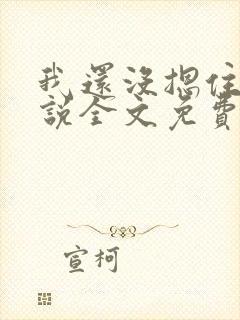 我還沒摁住
說全文免費
宣柯